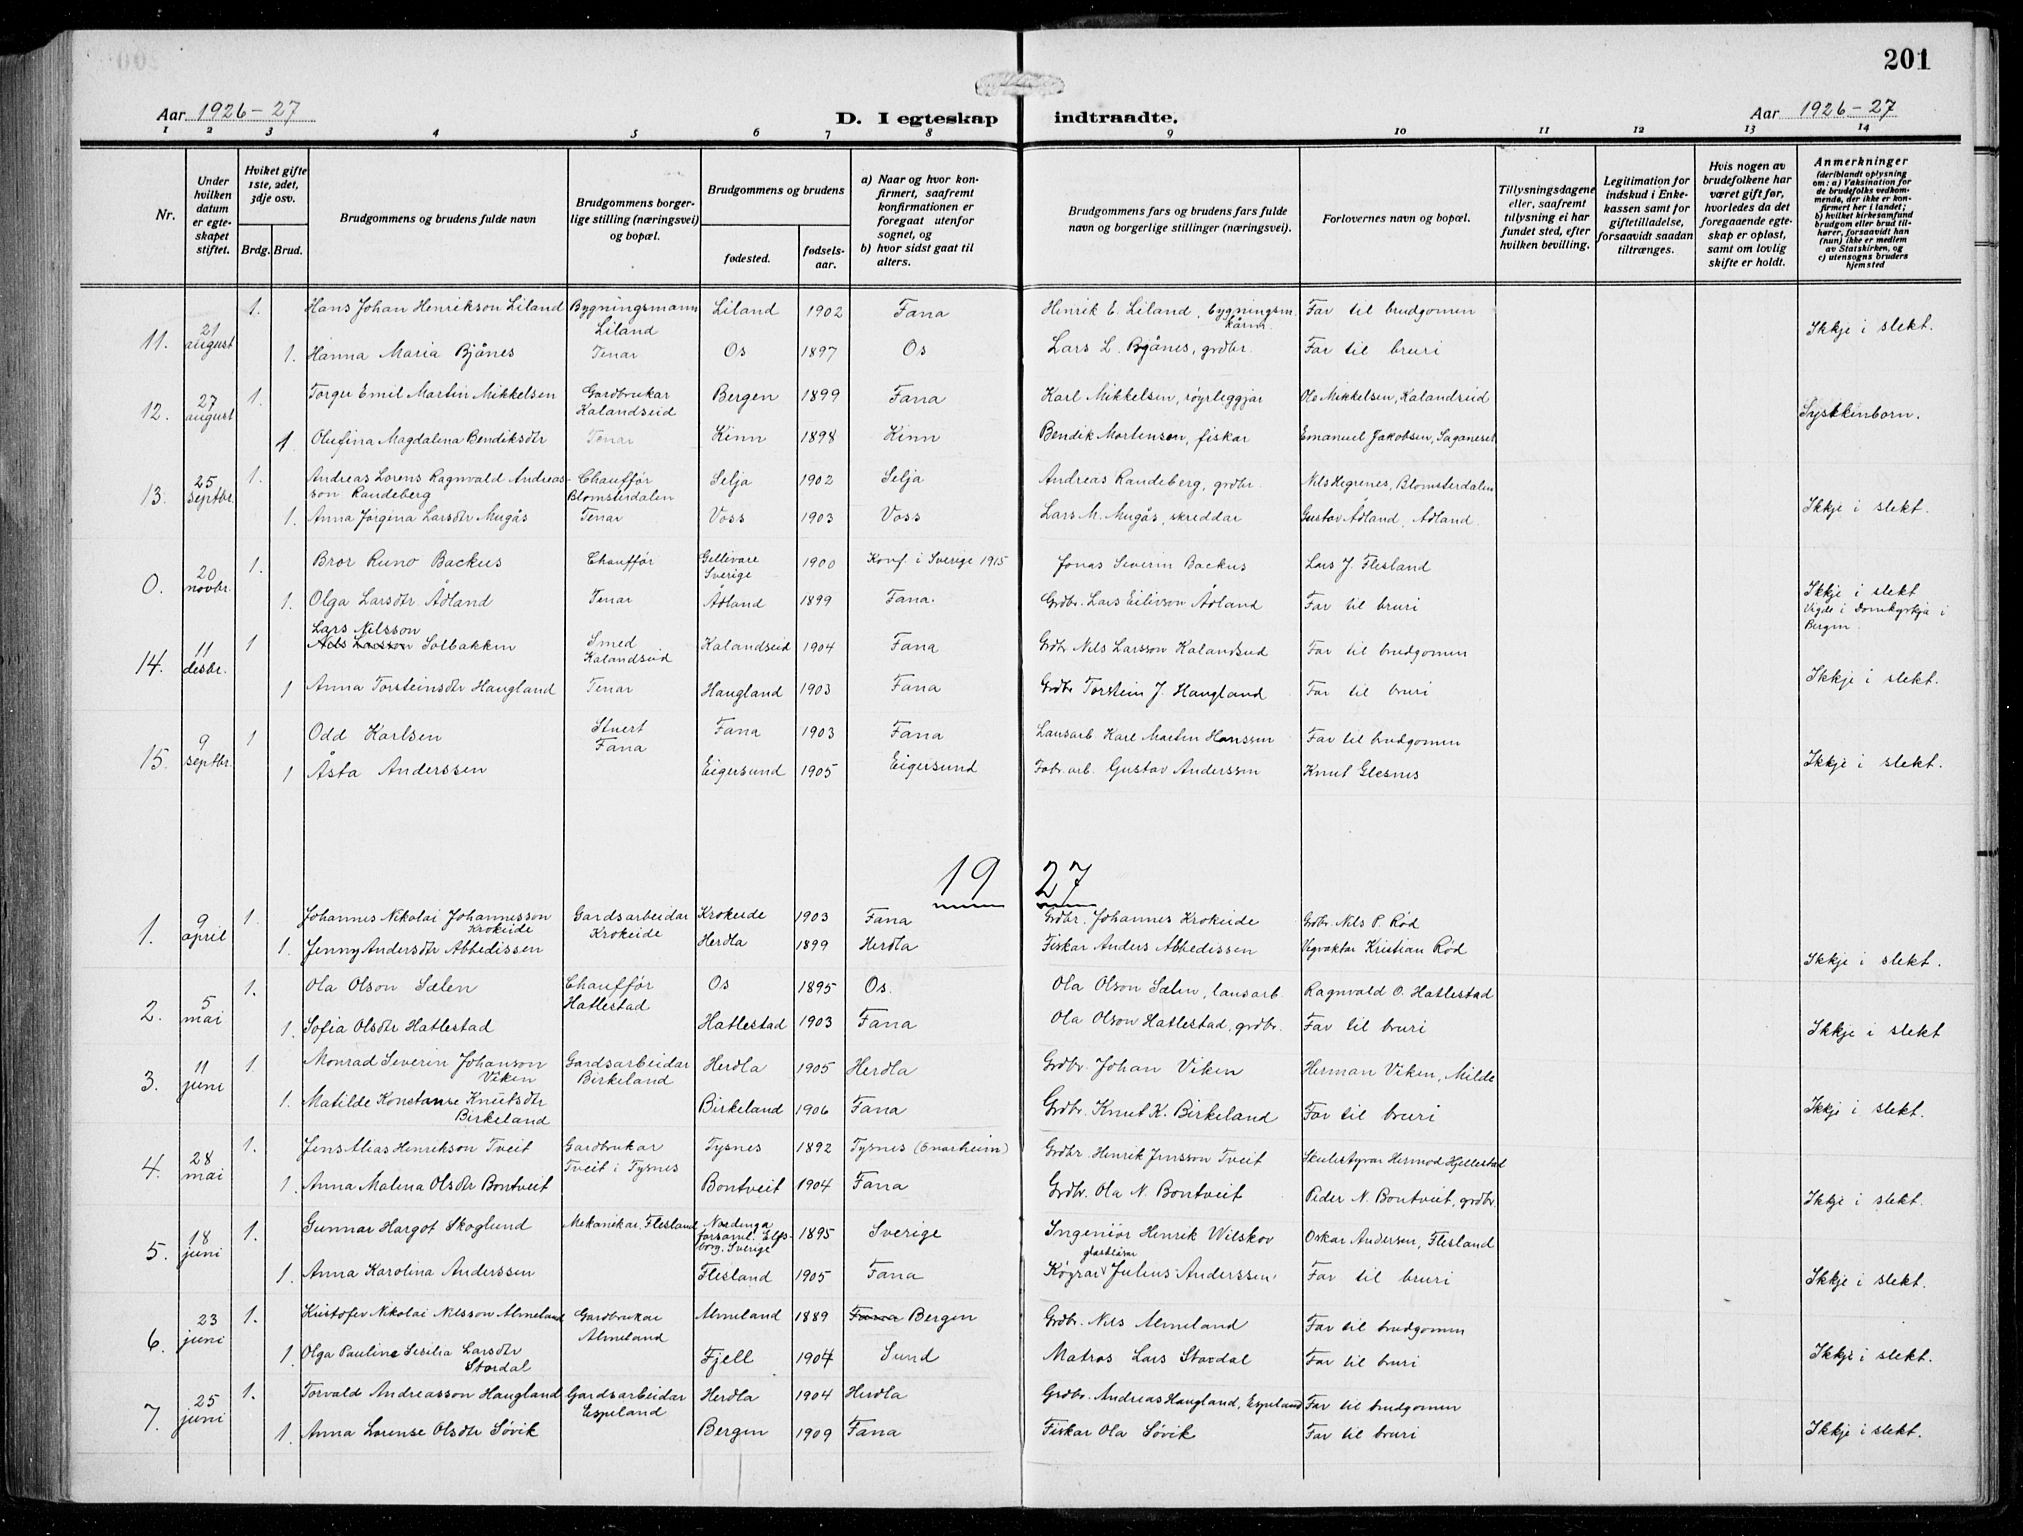 201
Aar 1926-27 D. I egteskap indtraadte. Aar 1926-27
1 2 3 4 5 6 7 8 9 10 11 12 13 14
Nr.
Under hvilken datum er egteskapet stiftet.
Hviket gifte 1ste, 2det, 3dje osv.
Brdg. Brud.
Brudgommens og brudens fulde navn
Brudgommens borgerlige stilling (næringsvei) og bopæl.
Brudgommens og brudens
fødested.
fødselsaar.
a) Naar og hvor konfirmert, saafremt konfirmationen er foregaat utenfor sognet, og
b) hvor sidst gaat til alters.
Brudgommens fars og brudens fars fulde navn og borgerlige stillinger (næringsvei).
Forlovernes navn og bopæl.
Tillysningsdagene eller, saafremt tillysning ei har fundet sted, efter hvilken bevilling.
Legitimation for indskud i Enkekassen samt for giftetilladelse, forsaavidt saadan tiltrænges.
Hvis nogen av brudefolkene har været gift før, hvorledes da det foregaaende egteskap er opløst, samt om lovlig skifte er holdt.
Anmerkninger (deriblandt oplysning om: a) Vaksination for de brudefolks vedkommende, der ikke er konfirmert her i landet; b) hvilket kirkesamfund brudgom eller brud tilhører, forsaavidt han (hun) ikke er medlem av Statskirken, og c) utensogns bruders hjemsted
11. 21 august 1. Hans Johan Henrikson Liland Bygningsmann Liland Liland 1902 Fana Henrik E. Liland, bygningsm. Far til brudgomen Ikkje i slekt.
1. Hanna Maria Bjånes Tenar Os 1897 Os Lars L. Bjånes, grdbr. Far til bruri
12. 27 august 1. Torger Emil Martin Mikkelsen Gardbrukar Kalandseid Bergen 1899 Fana Karl Mikkelsen, røyrleggjar Ole Mikkelsen, Kalandseid Syskkinborn.
1 Olufina Magdalena Bendiksdtr Tenar Kinn 1898 Kinn Bendik Mortensen, fiskar Emanuel Jakobsen, Saganeset
13. 25 septbr. 1. Andreas Lorens Ragnvald Andreasson Randeberg Chauffør Blomsterdalen Selja 1902 Selja Andreas Randeberg, grdbr. Nils Hegrenes, Blomsterdalen Ikkje i slekt.
1. Anna Jørgina Larsdtr Mugås Tenar Voss 1903 Voss Lars M. Mugås, skreddar Gustav Ådland, Ådland.
0. 20 novbr. 1. Bror Runo Backus Chauffør Gellivare Sverige 1900 Konf. i Sverige 1915 Jonas Severin Backus Lars J. Flesland Ikkje i slekt Vigde i Domkyrkja i Bergen.
1. Olga Larsdtr. Ådland Tenar Ådland 1899 Fana. Grdbr. Lars Eilivson Ådland Far til bruri
14. 11 desbr. 1 Lars Nilsson Nils Larsson Solbakken Smed Kalandseid Kalandseid 1904 Fana Grdbr Nils Larsson Kalandseid Far til brudgomen Ikkje i slekt.
1 Anna Torsteinsdtr Haugland Tenar Haugland 1903 Fana Grdbr Torstein J. Haugland Far til bruri
15. 9 septbr. 1 Odd Karlsen Stuert Fana Fana 1903 Fana Lausarb Karl Martin Hanssen Far til brudgomen Ikkje i slekt.
1 Åsta Anderssen Eigersund 1905 Eigersund Fabr. arb. Gustav Anderssen Knut Glesnes
1927
1. 9 april 1. Johannes Nikolai Johannesson Krokeide Gardsarbeidar Krokeide Krokeide 1903 Fana Grdbr. Johannes Krokeide Grdbr. Nils P. Rød Ikkje i slekt.
1. Jenny Andersdtr Abhedissen Herdla 1899 Herdla Fiskar Anders Abhedissen Vegvaktar Kristian Rød
2. 5 mai 1. Ola Olson Sælen Chauffør Hatlestad Os 1895 Os. Ola Olson Sælen, lausarb. Ragnvald O. Hatlestad Ikkje i slekt
1. Sofia Olsdtr Hatlestad Hatlestad 1903 Fana Ola Olson Hatlestad, grdbr. Far til bruri
3. 11 juni 1. Monrad Severin Johanson Viken Gardsarbeidar Birkeland Herdla 1905 Herdla Grdbr. Johan Viken Herman Viken, Milde Ikkje i slekt.
1. Matilde Konstanse Knutsdtr Birkeland Birkeland 1906 Fana Grdbr. Knut K. Birkeland Far til bruri
4. 28 mai 1. Jens Alias Henrikson Tveit Gardbrukar Tveit i Tysnes Tysnes 1892 Tysnes (Onarheim) Grdbr. Henrik Jensson Tveit Skulestyrar Hermod Hjellestad Ikkje i slekt.
1. Anna Malena Olsdtr Bontveit Bontveit 1904 Fana Grdbr. Ola N. Bontveit Peder N. Bontveit, grdbr.
5. 18 juni 1. Gunnar Hargot Skoglund Mekanikar, Flesland Nordinga forsaml. Elfsborg, Sverige 1895 Sverige Ingeniør Henrik Wilskov Oskar Andersen, Flesland Ikkje i slekt.
1. Anna Karolina Anderssen Flesland 1905 Fana Julius Anderssen Far til bruri
6. 23 juni 1. Kristofer Nikolai Nilsson Almeland Gardbrukar Almeland Almeland 1889 Fana Bergen Grdbr. Nils Almeland Far til brudgomen Ikkje i slekt.
1. Olga Pauline Sesilia Larsdtr Stordal Fjell 1904 Sund Matros Lars Stordal Far til bruri
7. 25 juni 1. Torvald Andreasson Haugland Gardsarbeidar Espeland Herdla 1904 Herdla Grdbr. Andreas Haugland, Espeland Far til brudgomen Ikkje i slekt.
1. Anna Lorense Olsdtr Søvik Bergen 1909 Fana Fiskar Ola Søvik Far til bruri